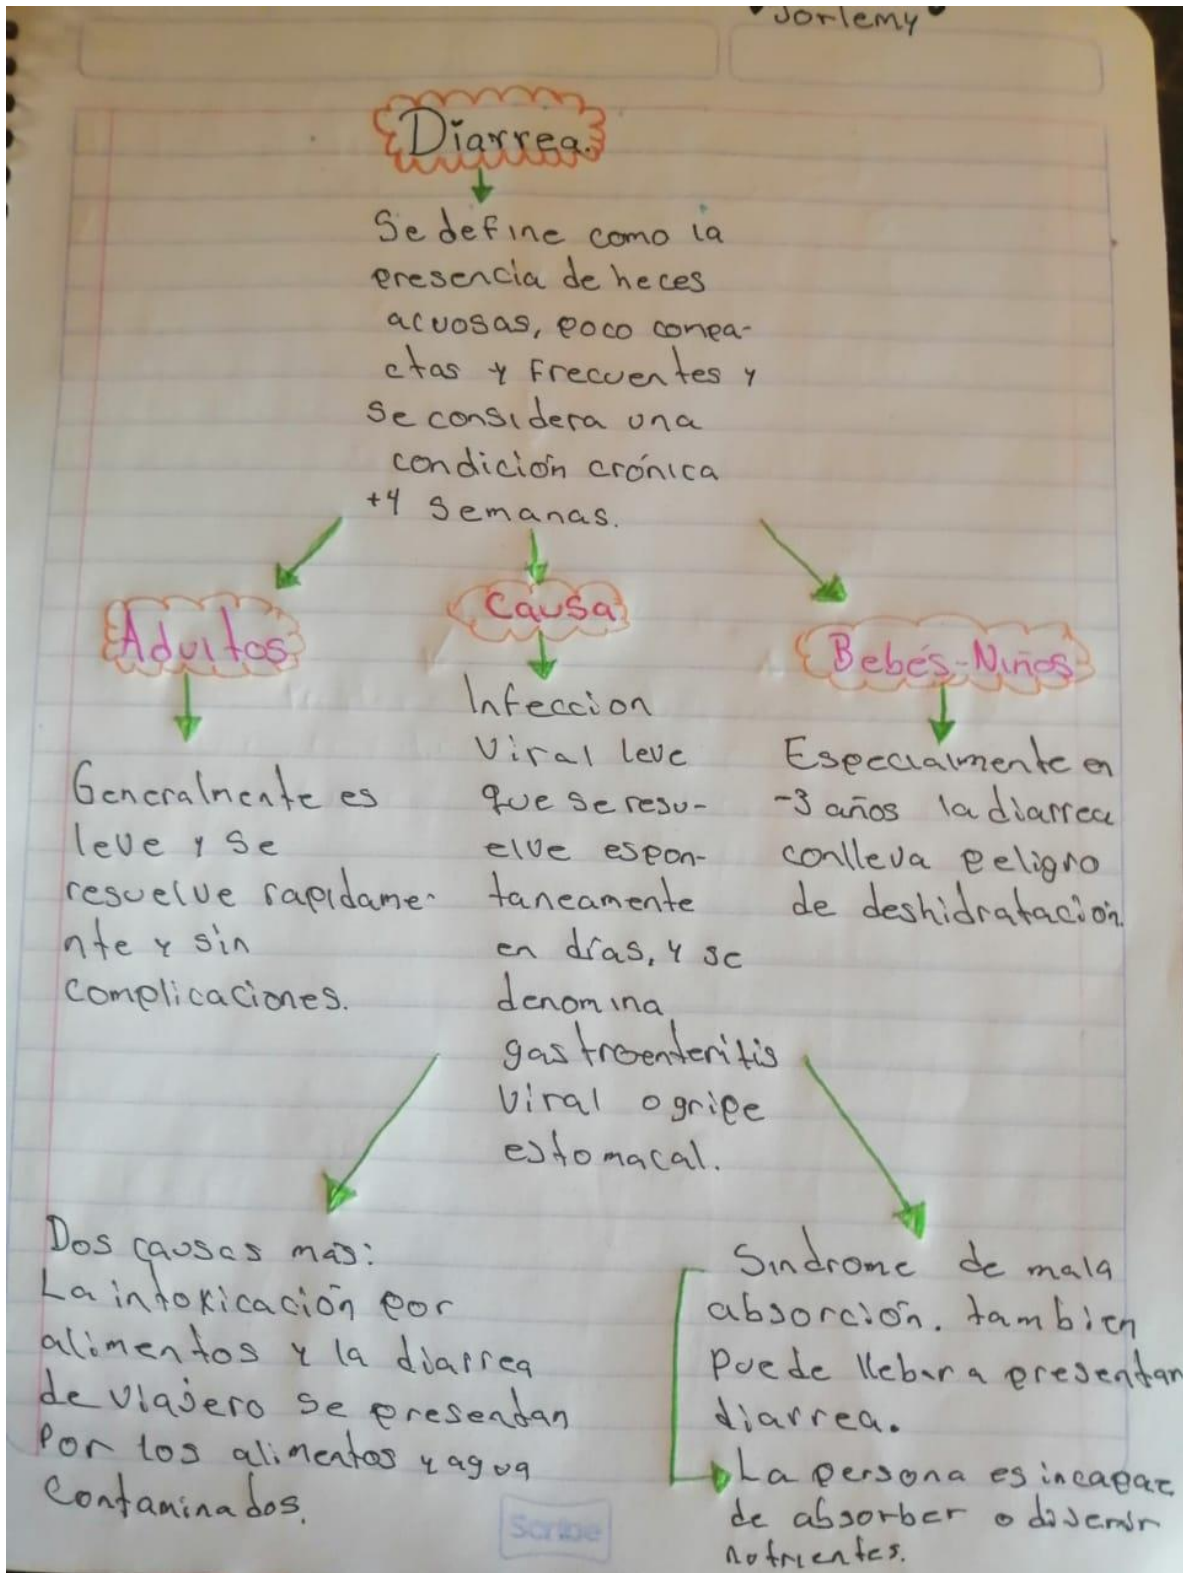 Jorlemy
Diarrea.
Se define como la
presencia de heces
acuosas, poco conpa-
ctas y frecuentes y
se considera una
condición crónica
+4 semanas.
Adultos
Generalmente es
leve y se
resuelve rapidame-
nte y sin
complicaciones.
Causa
Infeccion
viral leve
que se resu-
elve espon-
taneamente
en días, y se
denomina
gastroenteritis
viral o gripe
estomacal.
Bebés-Niños
Especialmente en
-3 años la diarrea
conlleva peligro
de deshidratación.
Dos causas más:
La intoxicación por
alimentos y la diarrea
de viajero se presentan
por los alimentos y agua
contaminados.
Sindrome de mala
absorción. tambien
puede llebar a presentar
diarrea.
La persona es incapaz
de absorber o dijerir
nutrientes.
Scribe